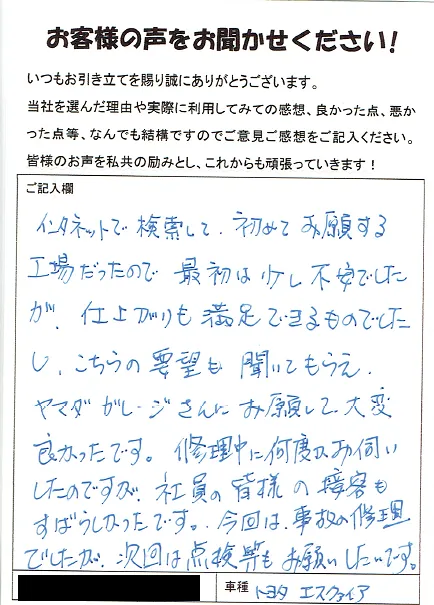 お客様の声をお聞かせください!
いつもお引き立てを賜り誠にありがとうございます。
当社を選んだ理由や実際に利用してみての感想、良かった点、悪か
った点等、なんでも結構ですのでご意見ご感想をご記入ください。
皆様のお声を私共の励みとし、これからも頑張っていきます!
ご記入欄
インタネットで検索して、初めてお願する
工場だったので最初は少し不安でした
が、仕上がりも満足できるものでした
し、こちらの要望も聞いてもらえ、
ヤマダガレージさんにお願して大変
良かったです。修理中に何度かお伺い
したのですが、社員の皆様の接客も
すばらしかったです。今回は、事故の修理
でしたが、次回は点検等もお願いしたいです。
車種 トヨタ エスクァイア